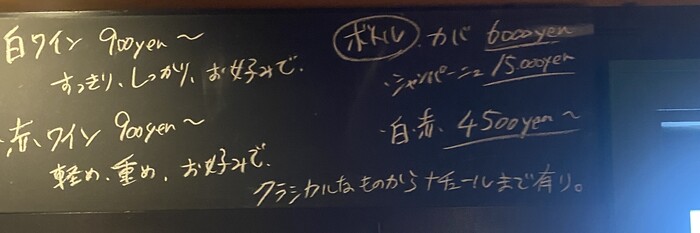 白ワイン 900yen〜
すっきり、しっかり、お好みで.
・赤ワイン 900yen〜
軽め、重め、お好みで.
ボトル ・カバ 6000yen
・シャンパーニュ 15.000yen
・白・赤 4500yen〜
クラシカルなものからナチュールまで有り。